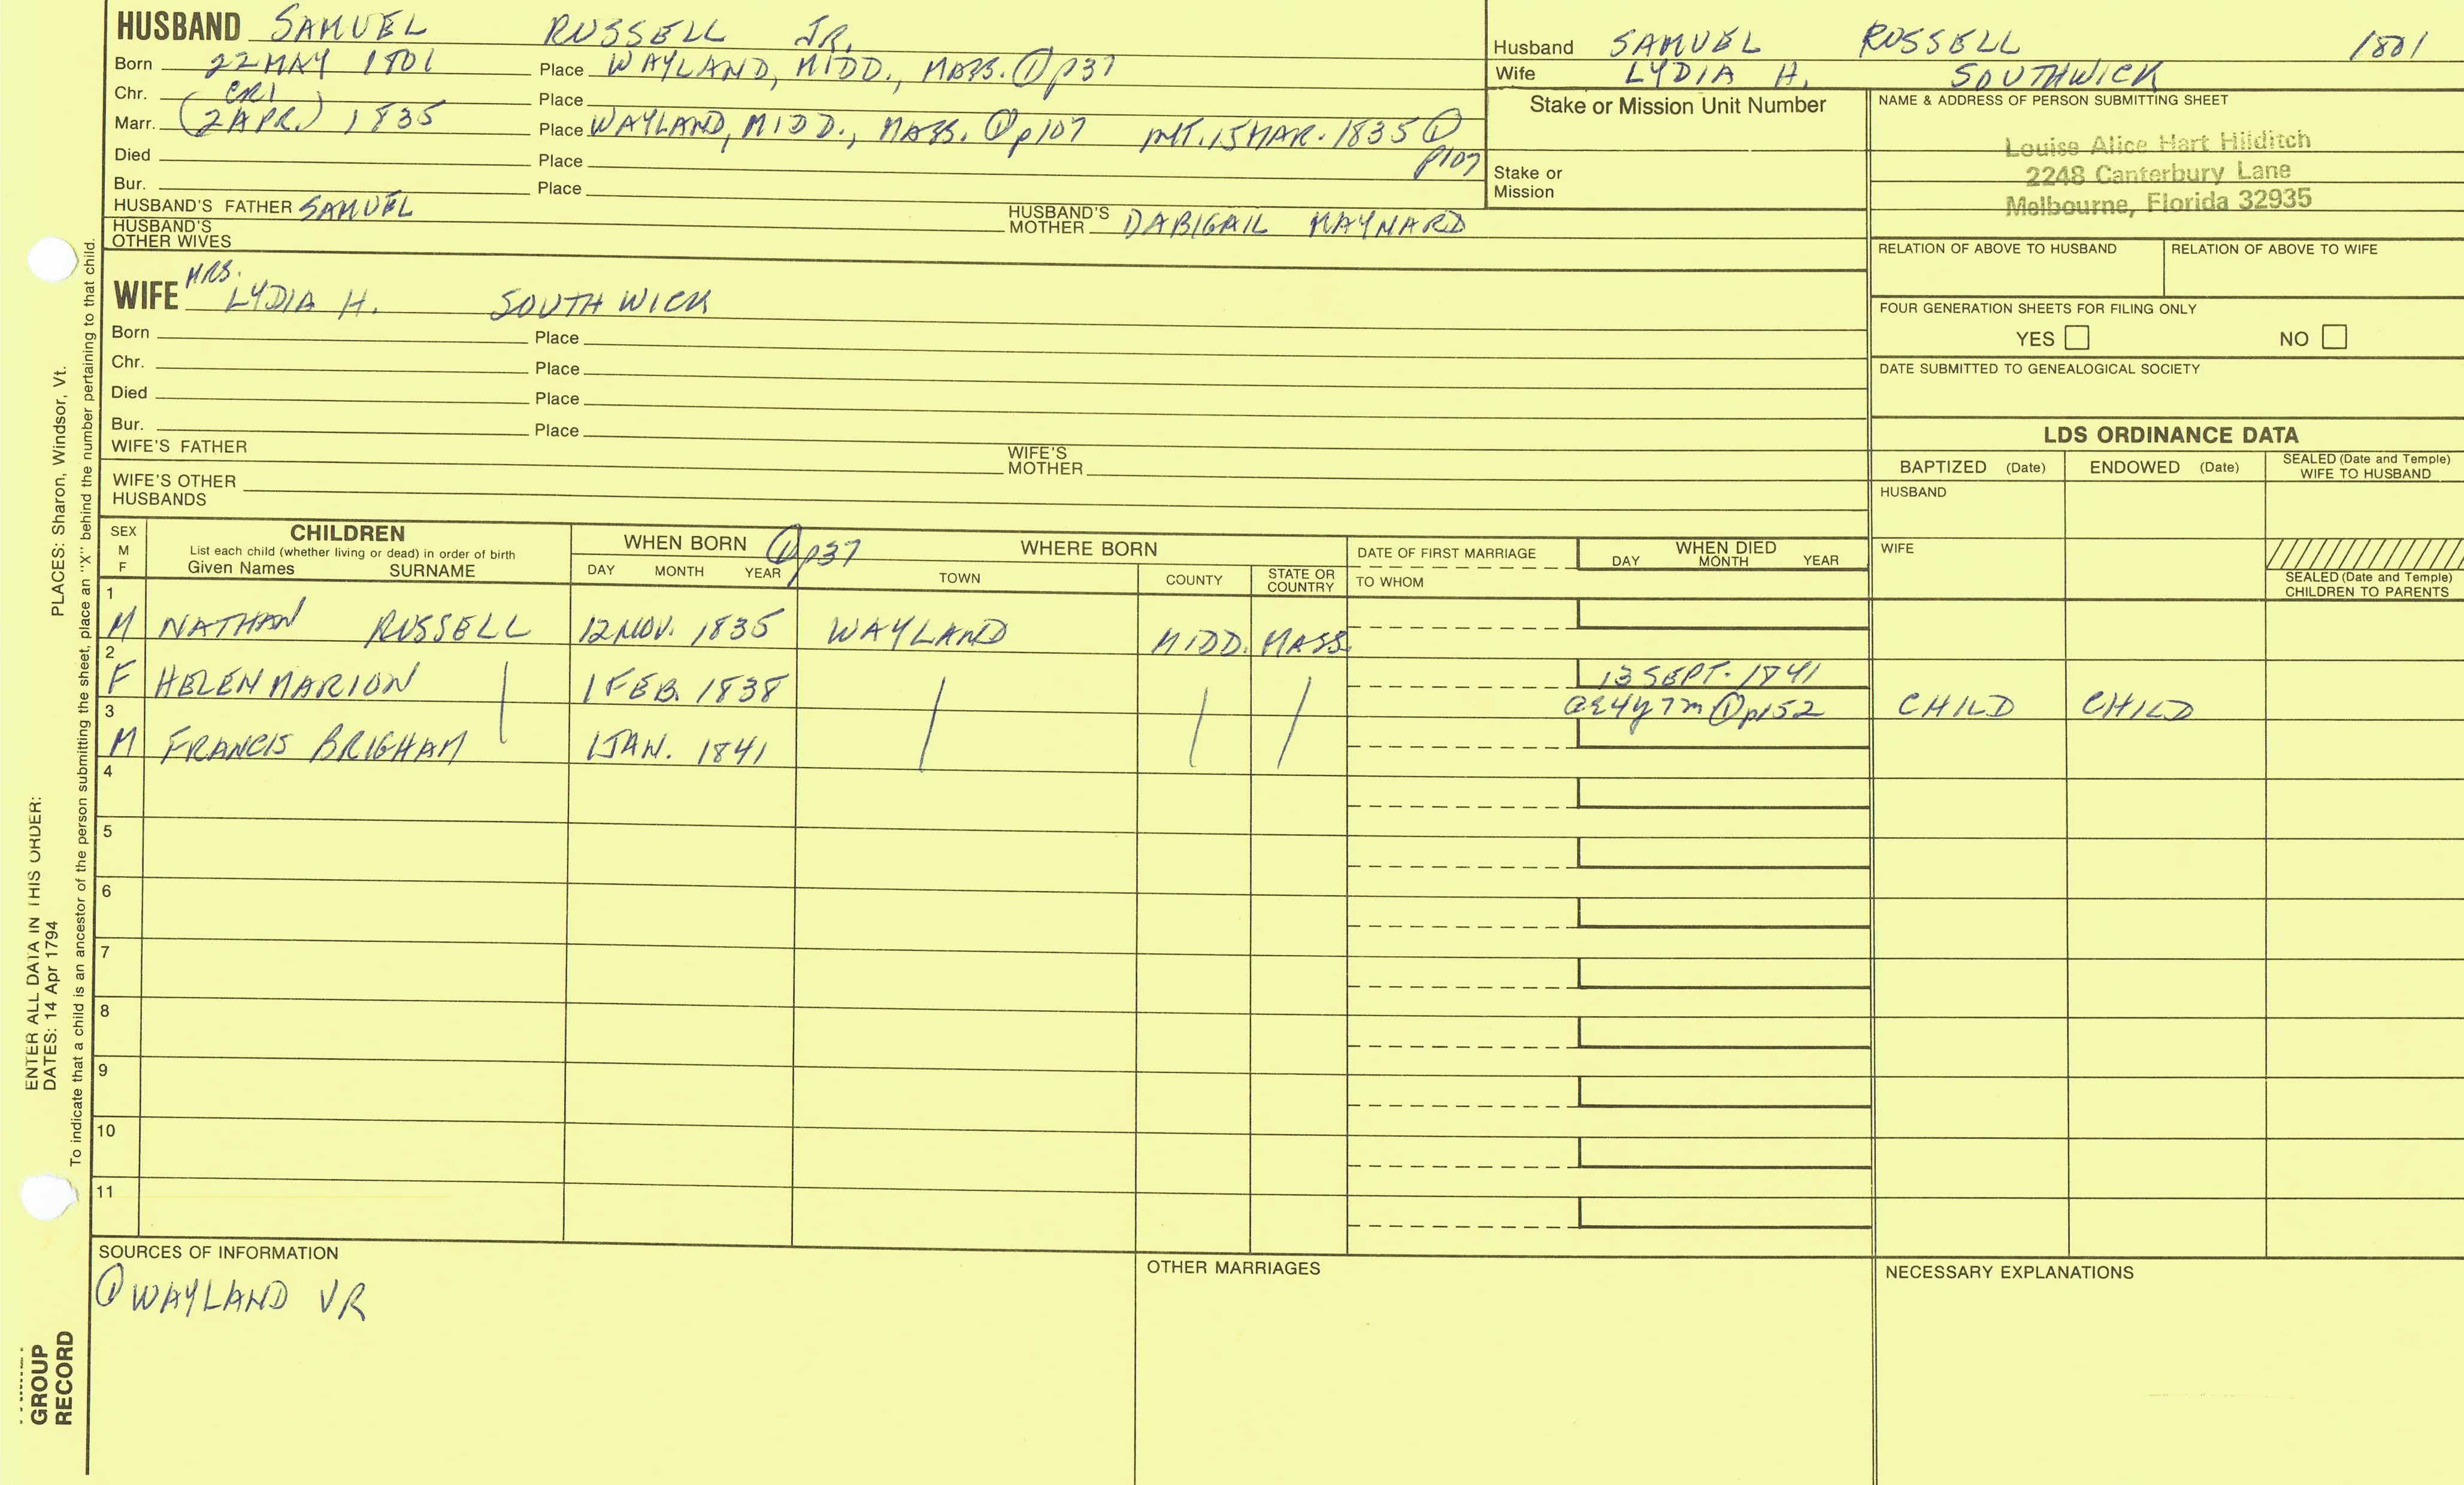 HUSBAND SAMUEL RUSSELL JR.
Born 22 MAY 1801 Place WAYLAND, MIDD., MASS. ① p37
Chr. Place
Marr. CR1 (2 APR.) 1835 Place WAYLAND, MIDD., MASS. ① p107 INT. 15 MAR. 1835 ① p107
Died Place
Bur. Place
HUSBAND'S FATHER SAMUEL HUSBAND'S MOTHER DABIGAIL MAYNARD
HUSBAND'S OTHER WIVES
Husband SAMUEL RUSSELL 1801
Wife LYDIA H. SOUTHWICK
Stake or Mission Unit Number
Stake or Mission
NAME & ADDRESS OF PERSON SUBMITTING SHEET
Louise Alice Hart Hilditch
2248 Canterbury Lane
Melbourne, Florida 32935
RELATION OF ABOVE TO HUSBAND RELATION OF ABOVE TO WIFE
FOUR GENERATION SHEETS FOR FILING ONLY
YES NO
DATE SUBMITTED TO GENEALOGICAL SOCIETY
WIFE MRS. LYDIA H. SOUTHWICK
Born Place
Chr. Place
Died Place
Bur. Place
WIFE'S FATHER WIFE'S MOTHER
WIFE'S OTHER HUSBANDS
LDS ORDINANCE DATA
BAPTIZED (Date) ENDOWED (Date) SEALED (Date and Temple) WIFE TO HUSBAND
HUSBAND
WIFE
SEALED (Date and Temple) CHILDREN TO PARENTS
SEX M F
CHILDREN
List each child (whether living or dead) in order of birth
Given Names SURNAME
WHEN BORN ① p37 WHERE BORN
DAY MONTH YEAR TOWN COUNTY STATE OR COUNTRY
DATE OF FIRST MARRIAGE
TO WHOM
WHEN DIED
DAY MONTH YEAR
1 M NATHAN RUSSELL 12 NOV. 1835 WAYLAND MIDD. MASS.
2 F HELEN MARION 1 FEB. 1838 13 SEPT. 1841
ae 4y 7m ① p152 CHILD CHILD
3 M FRANCIS BRIGHAM 1 JAN. 1841
4
5
6
7
8
9
10
11
SOURCES OF INFORMATION
① WAYLAND VR
OTHER MARRIAGES
NECESSARY EXPLANATIONS
ENTER ALL DATA IN THIS ORDER:
DATES: 14 Apr 1794 PLACES: Sharon, Windsor, Vt.
To indicate that a child is an ancestor of the person submitting the sheet, place an "X" behind the number pertaining to that child.
GROUP
RECORD